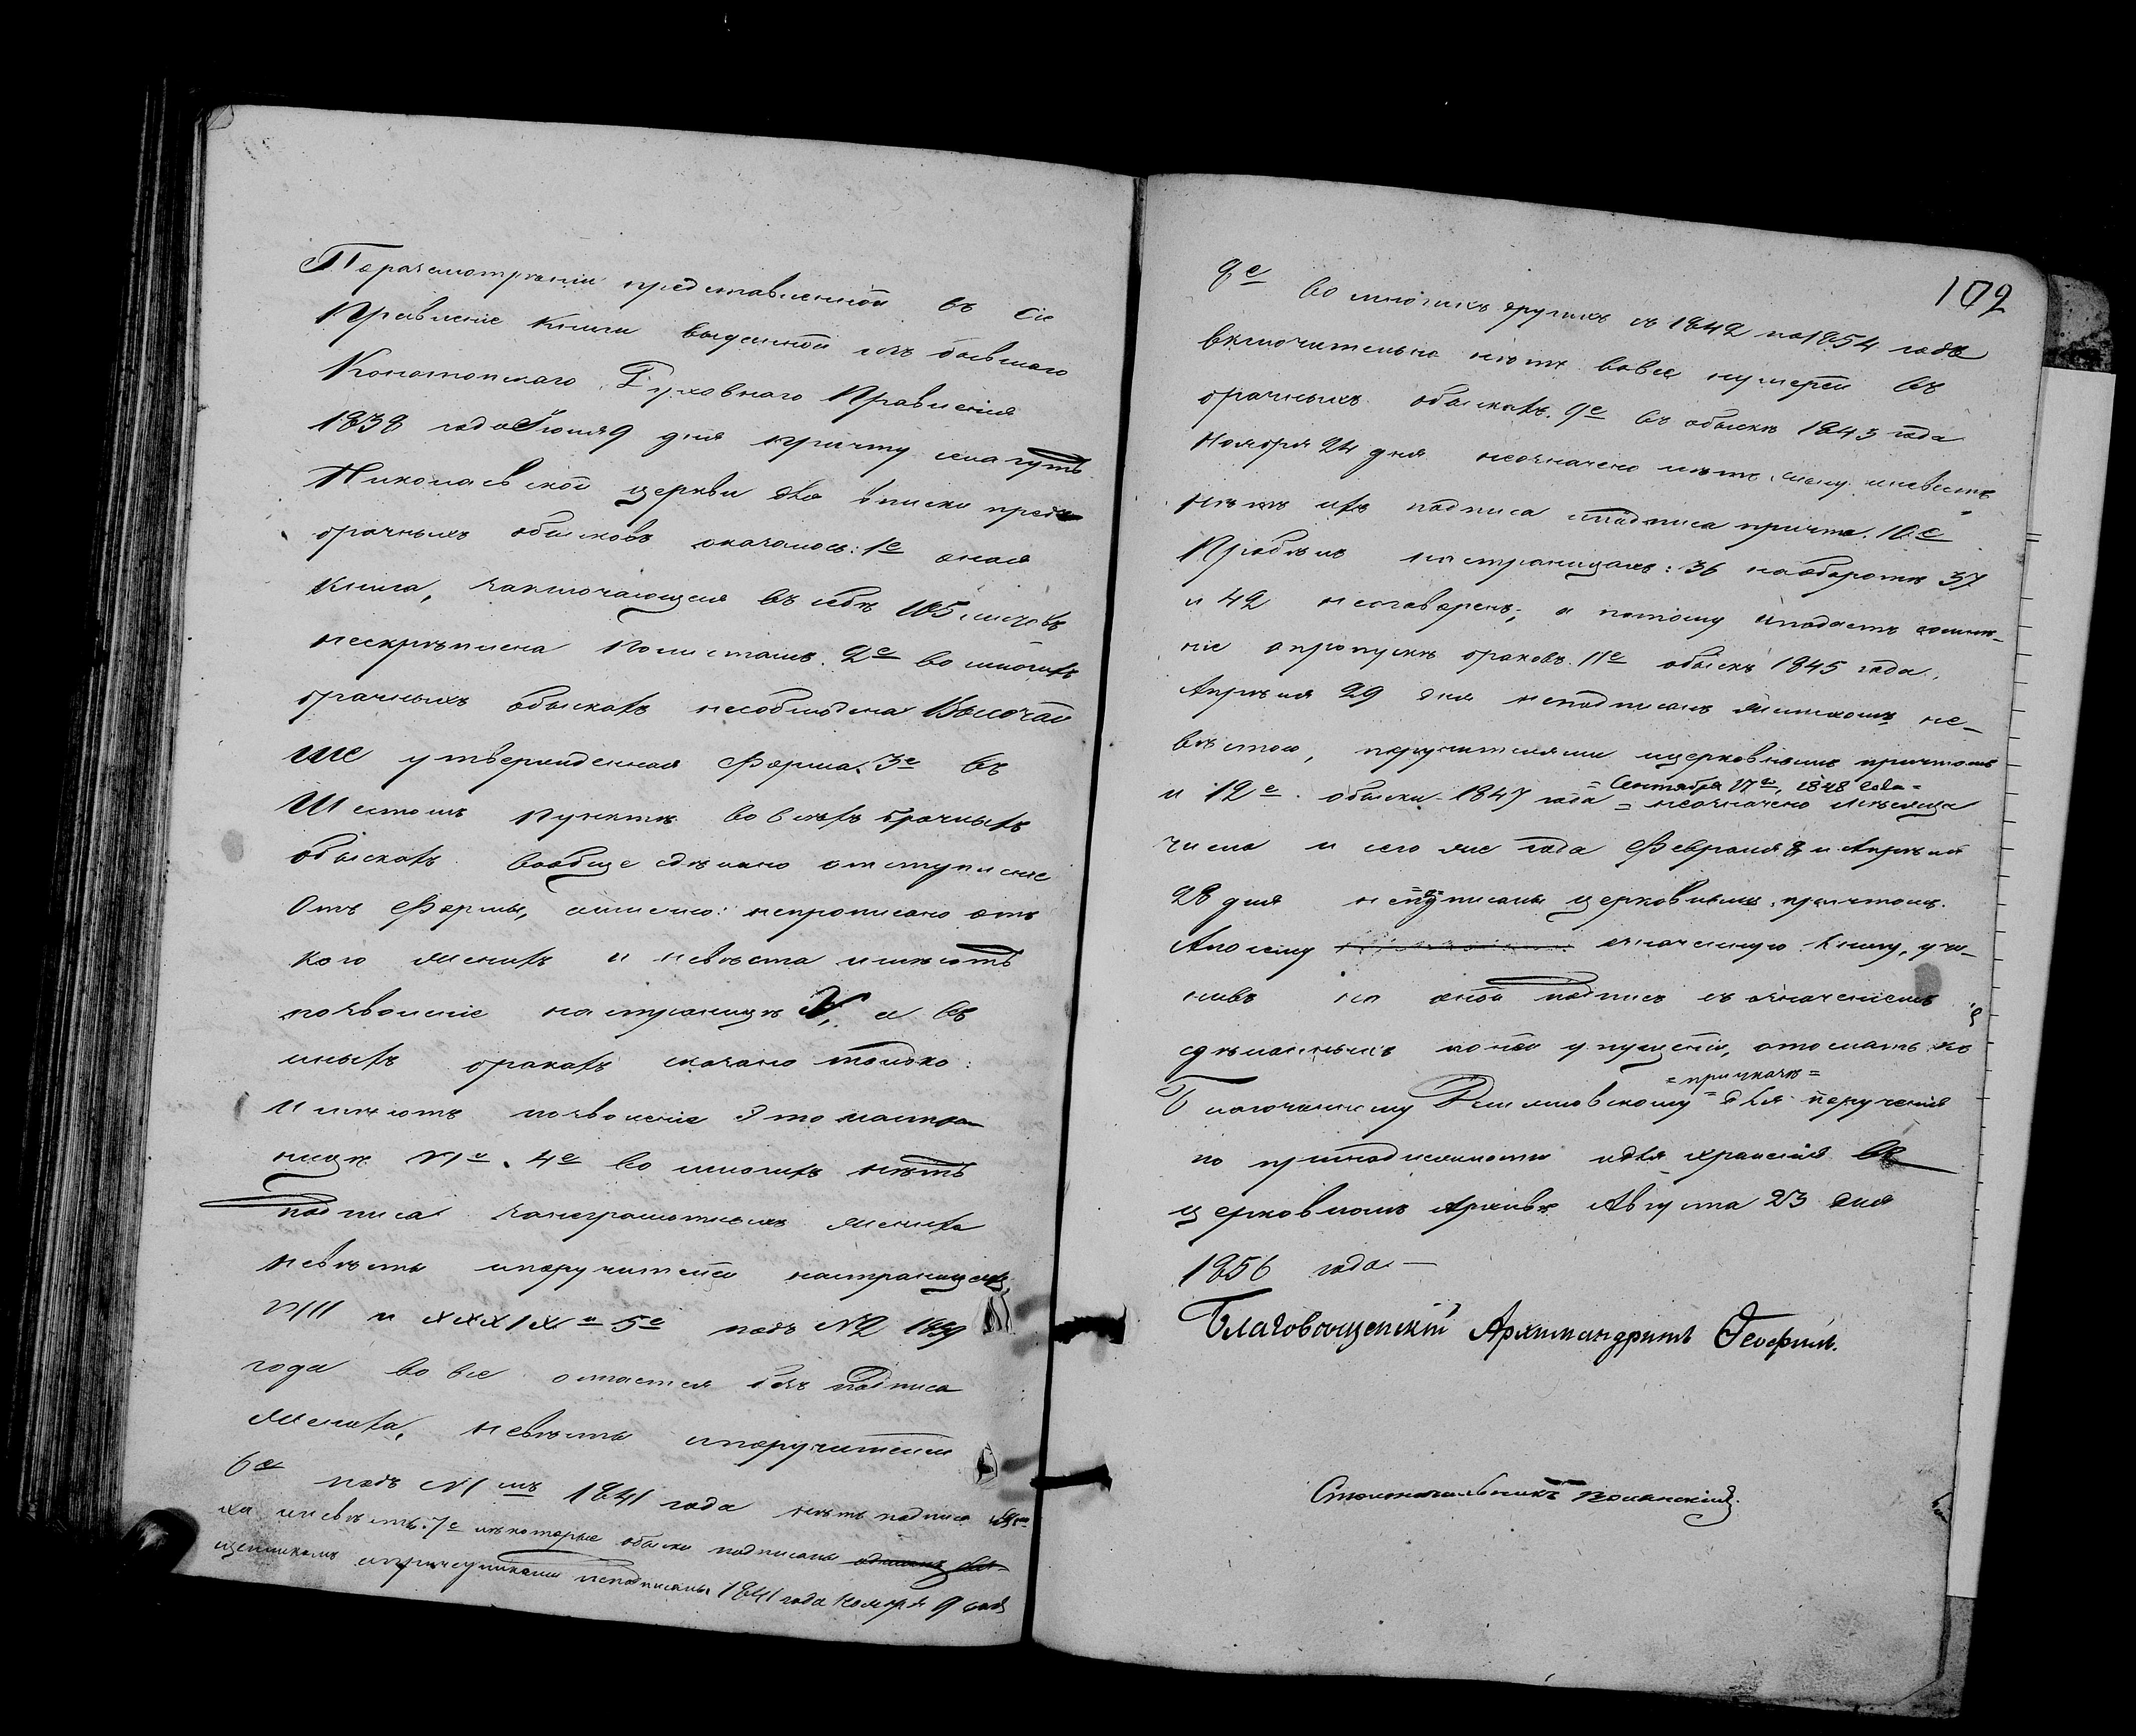 Поразсмотреніи представленной въ сіе
Правленіе книги выданной изъ бывшаго
Конотопскаго Духовнаго Правленія
1838 года Іюля 9 дня причту
Николаевской церкви для вписки пред
брачныхъ обысковъ оказалось: 1е оная
книга, заключающая въ себѣ 105 листовъ
нескрѣплена полистамъ. 2е во многихъ
брачныхъ обыскахъ несоблюдена Высочай
ше утвержденная Форма. 3е въ
Шестомъ пунктѣ во всѣхъ брачныхъ
обыскахъ вообще сдѣлано отступленіе
Отъ Формы, именно: непрописано отъ
кого женихъ и невѣста имѣютъ
позволеніе настраницѣ V, а въ
иныхъ бракахъ сказано только:
имѣютъ позволеніе Это настра
ницѣ 4е во многихъ нѣтъ
подписа занеграмотныхъ жениха
невѣсты ипоручителей настраницахъ
VIII и XXXIX й 5е подъ №2 1839
года вовсе остается безъ подписа
жениха, невѣсты ипоручителей
6е подъ №1 мъ 1841 года нѣтъ подписа жени
ха иневѣсты. 7е нѣкоторые обыски подписаны однимъ свя-
щенникомъ ипричетниками неподписаны 1841 года Ноября 9 дня
102
8е во многихъ другихъ съ 1842 по 1854 годъ
включительно нѣтъ вовсе нумеровъ въ
брачныхъ обыскахъ. 9е въ обыскѣ 1843 года
Ноября 24 дня неозначено лѣтъ жениху иневѣстѣ,
нѣтъ ихъ подписа иподписа причта. 10е
Пробѣлъ настраницахъ: 36 наоборотѣ 37
и 42 неоговоренъ, а потому подаетъ сомнѣ-
ніе опропускѣ браковъ. 11е обыскъ 1845 года
Апрѣля 29 дня неподписанъ женихомъ, не-
вѣстою, поручителями ицерковнымъ причтомъ
= Сентября 17е, 1848 года =
и 12е обыски 1847 года = неозначено мѣсяца
числа и того же года Февраля 8 и Апрѣля
28 дня неподписаны церковнымъ причтомъ.
Апотому означенную книгу, учи-
нивъ на оной подпись съ означеніемъ
сдѣланныхъ поней упущеній, отослать къ
= приказѣ =
Благочинному = для порученія
по принадлежности идля храненія въ
церковномъ Архивѣ Августа 23 дня
1856 года —
Благовѣщенскій Архимандритъ Ѳеофилъ.
Столоначальникъ